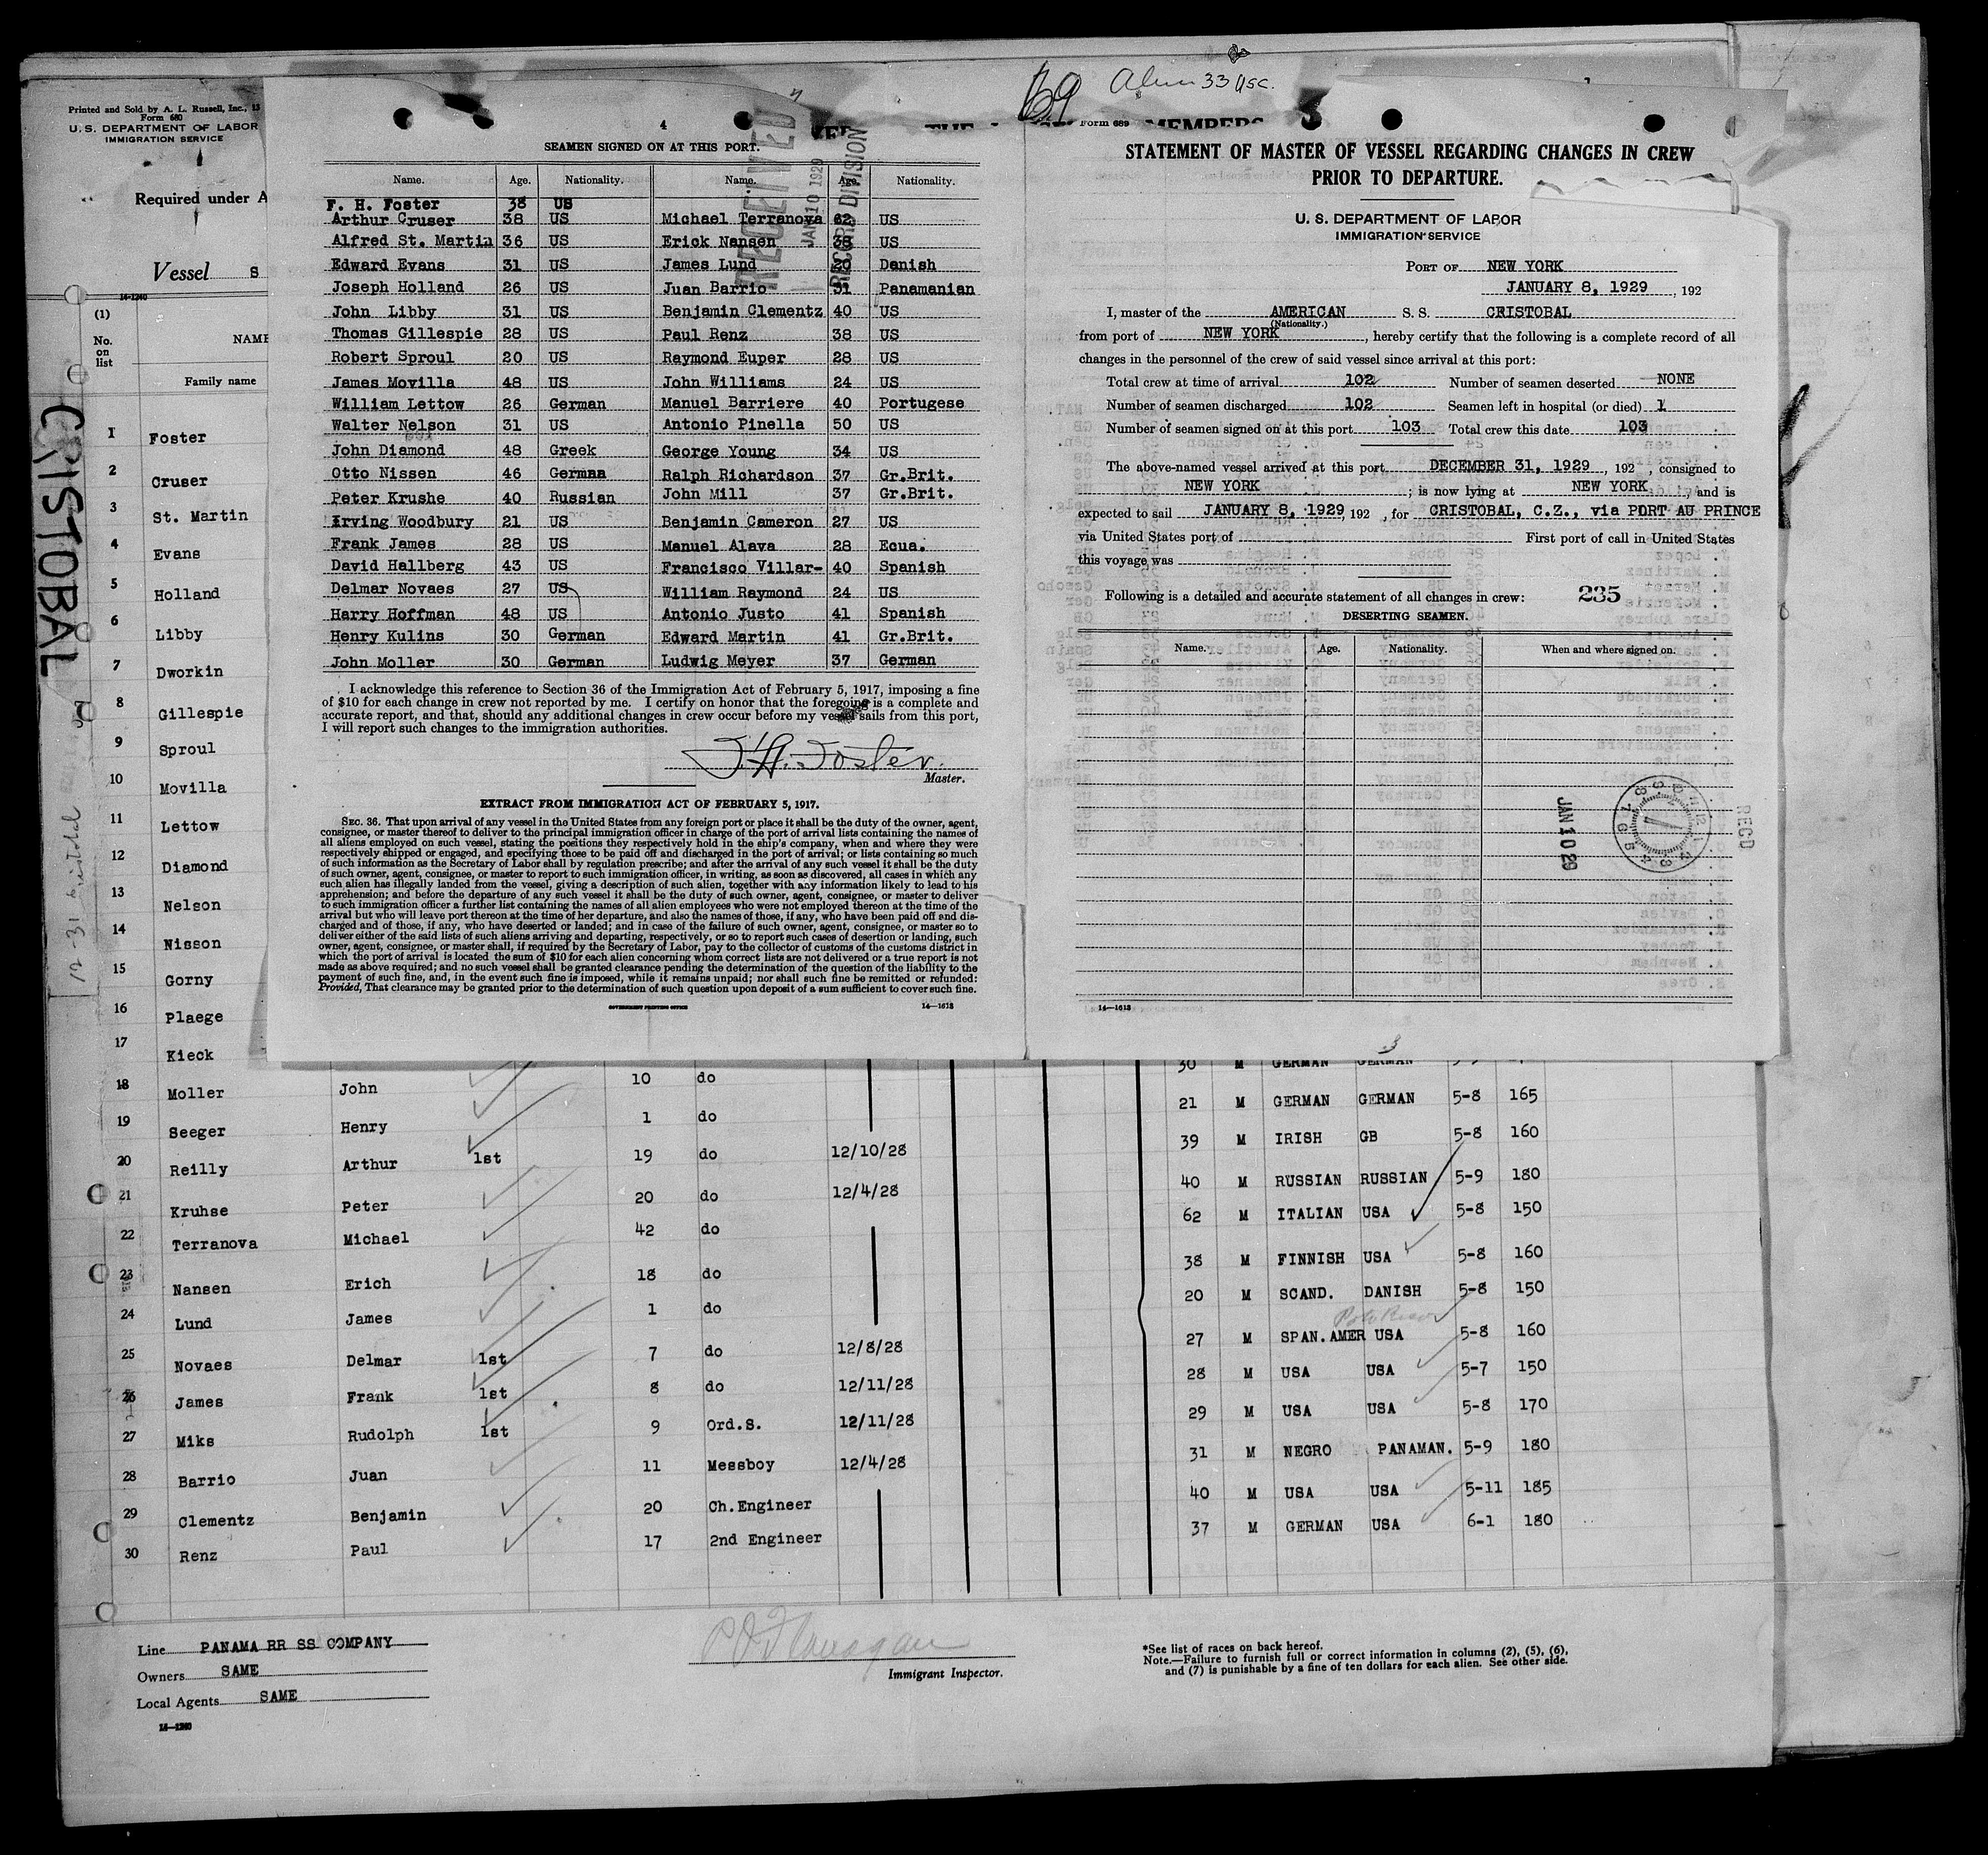 69 Alien 33 USC.
Printed and Sold by A. L. Russell, Inc., 13
Form 680
U. S. DEPARTMENT OF LABOR
IMMIGRATION SERVICE
Required under A
Vessel S
14-1240
(1)
No. on list
NAME
Family name
CRISTOBAL
1 Foster
2 Cruser
3 St. Martin
4 Evans
5 Holland
6 Libby
7 Dworkin
8 Gillespie
9 Sproul
10 Movilla
11 Lettow
12 Diamond
13 Nelson
14 Nisson
15 Gorny
16 Plaege
17 Kieck
4
SEAMEN SIGNED ON AT THIS PORT.
RECEIVED
JAN 10 1929
RECORD DIVISION
Name. Age. Nationality. Name. Age. Nationality.
F. H. Foster 38 US
Arthur Cruser 38 US Michael Terranova 62 US
Alfred St. Martin 36 US Erick Nansen 38 US
Edward Evans 31 US James Lund 20 Danish
Joseph Holland 26 US Juan Barrio 31 Panamanian
John Libby 31 US Benjamin Clementz 40 US
Thomas Gillespie 28 US Paul Renz 38 US
Robert Sproul 20 US Raymond Euper 28 US
James Movilla 48 US John Williams 24 US
William Lettow 26 German Manuel Barriere 40 Portugese
Walter Nelson 31 US Antonio Pinella 50 US
John Diamond 48 Greek George Young 34 US
Otto Nissen 46 German Ralph Richardson 37 Gr.Brit.
Peter Krushe 40 Russian John Mill 37 Gr.Brit.
Irving Woodbury 21 US Benjamin Cameron 27 US
Frank James 28 US Manuel Alava 28 Ecua.
David Hallberg 43 US Francisco Villar- 40 Spanish
Delmar Novaes 27 US William Raymond 24 US
Harry Hoffman 48 US Antonio Justo 41 Spanish
Henry Kulins 30 German Edward Martin 41 Gr.Brit.
John Moller 30 German Ludwig Meyer 37 German
I acknowledge this reference to Section 36 of the Immigration Act of February 5, 1917, imposing a fine
of $10 for each change in crew not reported by me. I certify on honor that the foregoing is a complete and
accurate report, and that, should any additional changes in crew occur before my vessel sails from this port,
I will report such changes to the immigration authorities.
F. H. Foster.
Master.
EXTRACT FROM IMMIGRATION ACT OF FEBRUARY 5, 1917.
SEC. 36. That upon arrival of any vessel in the United States from any foreign port or place it shall be the duty of the owner, agent,
consignee, or master thereof to deliver to the principal immigration officer in charge of the port of arrival lists containing the names of
all aliens employed on such vessel, stating the positions they respectively hold in the ship's company, when and where they were
respectively shipped or engaged, and specifying those to be paid off and discharged in the port of arrival; or lists containing so much
of such information as the Secretary of Labor shall by regulation prescribe; and after the arrival of any such vessel it shall be the duty
of such owner, agent, consignee, or master to report to such immigration officer, in writing, as soon as discovered, all cases in which any
such alien has illegally landed from the vessel, giving a description of such alien, together with any information likely to lead to his
apprehension; and before the departure of any such vessel it shall be the duty of such owner, agent, consignee, or master to deliver
to such immigration officer a further list containing the names of all alien employees who were not employed thereon at the time of the
arrival but who will leave port thereon at the time of her departure, and also the names of those, if any, who have been paid off and dis-
charged and of those, if any, who have deserted or landed; and in case of the failure of such owner, agent, consignee, or master so to
deliver either of the said lists of such aliens arriving and departing, respectively, or so to report such cases of desertion or landing, such
owner, agent, consignee, or master shall, if required by the Secretary of Labor, pay to the collector of customs of the customs district in
which the port of arrival is located the sum of $10 for each alien concerning whom correct lists are not delivered or a true report is not
made as above required; and no such vessel shall be granted clearance pending the determination of the question of the liability to the
payment of such fine, and, in the event such fine is imposed, while it remains unpaid; nor shall such fine be remitted or refunded:
Provided, That clearance may be granted prior to the determination of such question upon deposit of a sum sufficient to cover such fine.
GOVERNMENT PRINTING OFFICE 14—1613
Form 689
STATEMENT OF MASTER OF VESSEL REGARDING CHANGES IN CREW
PRIOR TO DEPARTURE.
U. S. DEPARTMENT OF LABOR
IMMIGRATION SERVICE
PORT OF NEW YORK
JANUARY 8, 1929, 192
I, master of the AMERICAN S. S. CRISTOBAL
(Nationality.)
from port of NEW YORK, hereby certify that the following is a complete record of all
changes in the personnel of the crew of said vessel since arrival at this port:
Total crew at time of arrival 102 Number of seamen deserted NONE
Number of seamen discharged 102 Seamen left in hospital (or died) 1
Number of seamen signed on at this port 103 Total crew this date 103
The above-named vessel arrived at this port DECEMBER 31, 1929, 192 , consigned to
NEW YORK ; is now lying at NEW YORK, and is
expected to sail JANUARY 8, 1929, 192 , for CRISTOBAL, C.Z., via PORT AU PRINCE
via United States port of First port of call in United States
this voyage was
Following is a detailed and accurate statement of all changes in crew: 235
DESERTING SEAMEN.
Name. Age. Nationality. When and where signed on.
JAN 10 29
REC'D
14—1613
30 M GERMAN GERMAN
18 Moller John 10 do 21 M GERMAN GERMAN 5-8 165
19 Seeger Henry 1 do 39 M IRISH GB 5-8 160
20 Reilly Arthur 1st 19 do 12/10/28 40 M RUSSIAN RUSSIAN 5-9 180
21 Kruhse Peter 20 do 12/4/28 62 M ITALIAN USA 5-8 150
22 Terranova Michael 42 do 38 M FINNISH USA 5-8 160
23 Nansen Erich 18 do 20 M SCAND. DANISH 5-8 150
24 Lund James 1 do 27 M SPAN.AMER USA 5-8 160
25 Novaes Delmar 1st 7 do 12/8/28 28 M USA USA 5-7 150
26 James Frank 1st 8 do 12/11/28 29 M USA USA 5-8 170
27 Miks Rudolph 1st 9 Ord.S. 12/11/28 31 M NEGRO PANAMAN. 5-9 180
28 Barrio Juan 11 Messboy 12/4/28 40 M USA USA 5-11 185
29 Clementz Benjamin 20 Ch.Engineer 37 M GERMAN USA 6-1 180
30 Renz Paul 17 2nd Engineer
Line PANAMA RR SS COMPANY
Owners SAME
Local Agents SAME
14—1240
Immigrant Inspector.
*See list of races on back hereof.
Note.—Failure to furnish full or correct information in columns (2), (5), (6),
and (7) is punishable by a fine of ten dollars for each alien. See other side.